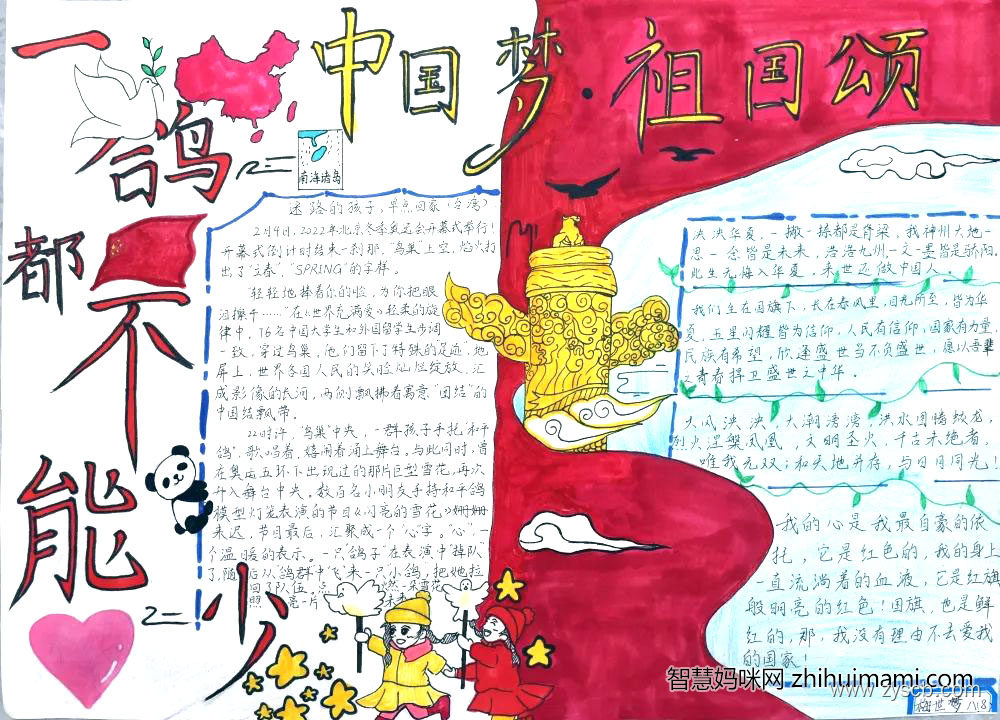 中国梦·祖国颂
一鸽都不能少
南海诸岛
迷路的孩子,早点回家(台湾)
2月4日,2022年北京冬季奥运会开幕式举行!
开幕式倒计时结束一刹那,"鸟巢"上空,焰火打
出了"立春"、"SPRING"的字样。
"轻轻地捧着你的脸,为你把眼
泪擦干……"在《世界充满爱》轻柔的旋
律中,76名中国大学生和外国留学生步调
一致,穿过鸟巢,他们留下了特殊的足迹,地
屏上,世界各国人民的笑脸灿烂绽放,汇
成影像的长河,两侧飘拂着寓意"团结"的
中国结飘带。
22时许,"鸟巢"中央,一群孩子手托"和平
鸽",歌唱着,嬉闹着涌上舞台,与此同时,曾
在奥运五环下出现过的那片巨型雪花,再次
升入舞台中央,数百名小朋友手持和平鸽
模型灯笼表演的节目《闪亮的雪花》姗姗
来迟,节目最后,汇聚成一个"心"字。"心",一
个温暖的表示。一只"鸽子"在表演中掉队
了,随后从"鸽群中"飞"来一只小鸽,把她拉
回了队伍。
泱泱华夏,一撇一捺都是脊梁,我神州大地一
思一念皆是未来,浩浩九州一文一墨皆是骄阳。
此生无悔入华夏,来世还做中国人。
我们生在国旗下,长在春风里,目光所至,皆为华
夏,五星闪耀皆为信仰,人民有信仰,国家有力量,
民族有希望,欣逢盛世当不负盛世,愿以吾辈
之青春捍卫盛世之中华。
大风泱泱,大潮滂滂,洪水图腾蛟龙,
烈火涅槃凤凰,文明圣火,千古未绝者,
唯我无双;和天地并存,与日月同光!
我的心是我最自豪的依
托,它是红色的,我的身上
一直流淌着的血液,它是红旗
般明亮的红色!国旗,也是鲜
红的,那,我没有理由不去爱我
的国家!
智慧妈咪网 zhihuimami.com
www.zyscb.com